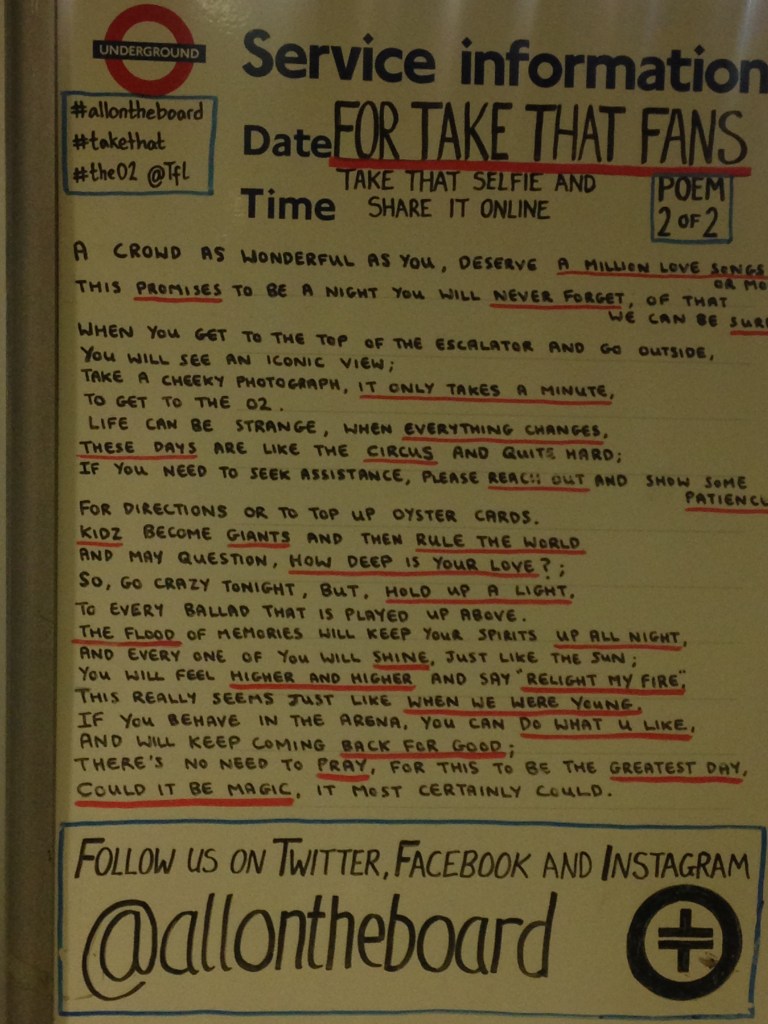 UNDERGROUND
Service information
#allontheboard
#takethat
#theO2 @Tfl
Date FOR TAKE THAT FANS
Time TAKE THAT SELFIE AND
SHARE IT ONLINE
POEM
2 OF 2
A CROWD AS WONDERFUL AS YOU, DESERVE A MILLION LOVE SONGS
OR MO
THIS PROMISES TO BE A NIGHT YOU WILL NEVER FORGET, OF THAT
WE CAN BE SURE
WHEN YOU GET TO THE TOP OF THE ESCALATOR AND GO OUTSIDE,
YOU WILL SEE AN ICONIC VIEW;
TAKE A CHEEKY PHOTOGRAPH, IT ONLY TAKES A MINUTE,
TO GET TO THE O2.
LIFE CAN BE STRANGE, WHEN EVERYTHING CHANGES,
THESE DAYS ARE LIKE THE CIRCUS AND QUITE HARD;
IF YOU NEED TO SEEK ASSISTANCE, PLEASE REACH OUT AND SHOW SOME
PATIENCE
FOR DIRECTIONS OR TO TOP UP OYSTER CARDS.
KIDZ BECOME GIANTS AND THEN RULE THE WORLD
AND MAY QUESTION, HOW DEEP IS YOUR LOVE?;
SO, GO CRAZY TONIGHT, BUT, HOLD UP A LIGHT,
TO EVERY BALLAD THAT IS PLAYED UP ABOVE.
THE FLOOD OF MEMORIES WILL KEEP YOUR SPIRITS UP ALL NIGHT,
AND EVERY ONE OF YOU WILL SHINE, JUST LIKE THE SUN;
YOU WILL FEEL HIGHER AND HIGHER AND SAY "RELIGHT MY FIRE",
THIS REALLY SEEMS JUST LIKE WHEN WE WERE YOUNG.
IF YOU BEHAVE IN THE ARENA, YOU CAN DO WHAT U LIKE,
AND WILL KEEP COMING BACK FOR GOOD;
THERE'S NO NEED TO PRAY, FOR THIS TO BE THE GREATEST DAY,
COULD IT BE MAGIC, IT MOST CERTAINLY COULD.
FOLLOW US ON TWITTER, FACEBOOK AND INSTAGRAM
@allontheboard